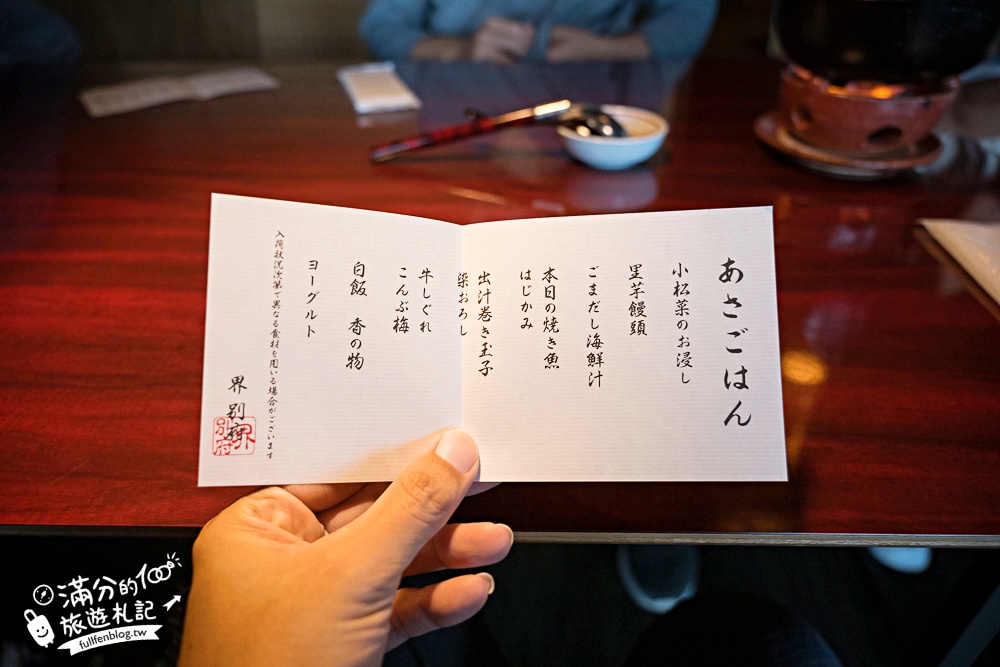 あさごはん
小松菜のお浸し
里芋饅頭
ごまだし海鮮汁
本日の焼き魚
はじかみ
出汁巻き玉子
染おろし
牛しぐれ
こんぶ梅
白飯　香の物
ヨーグルト
入荷状況次第で異なる食材を用いる場合がございます
界 別府
界
別府
滿分的
旅遊札記
fullfenblog.tw